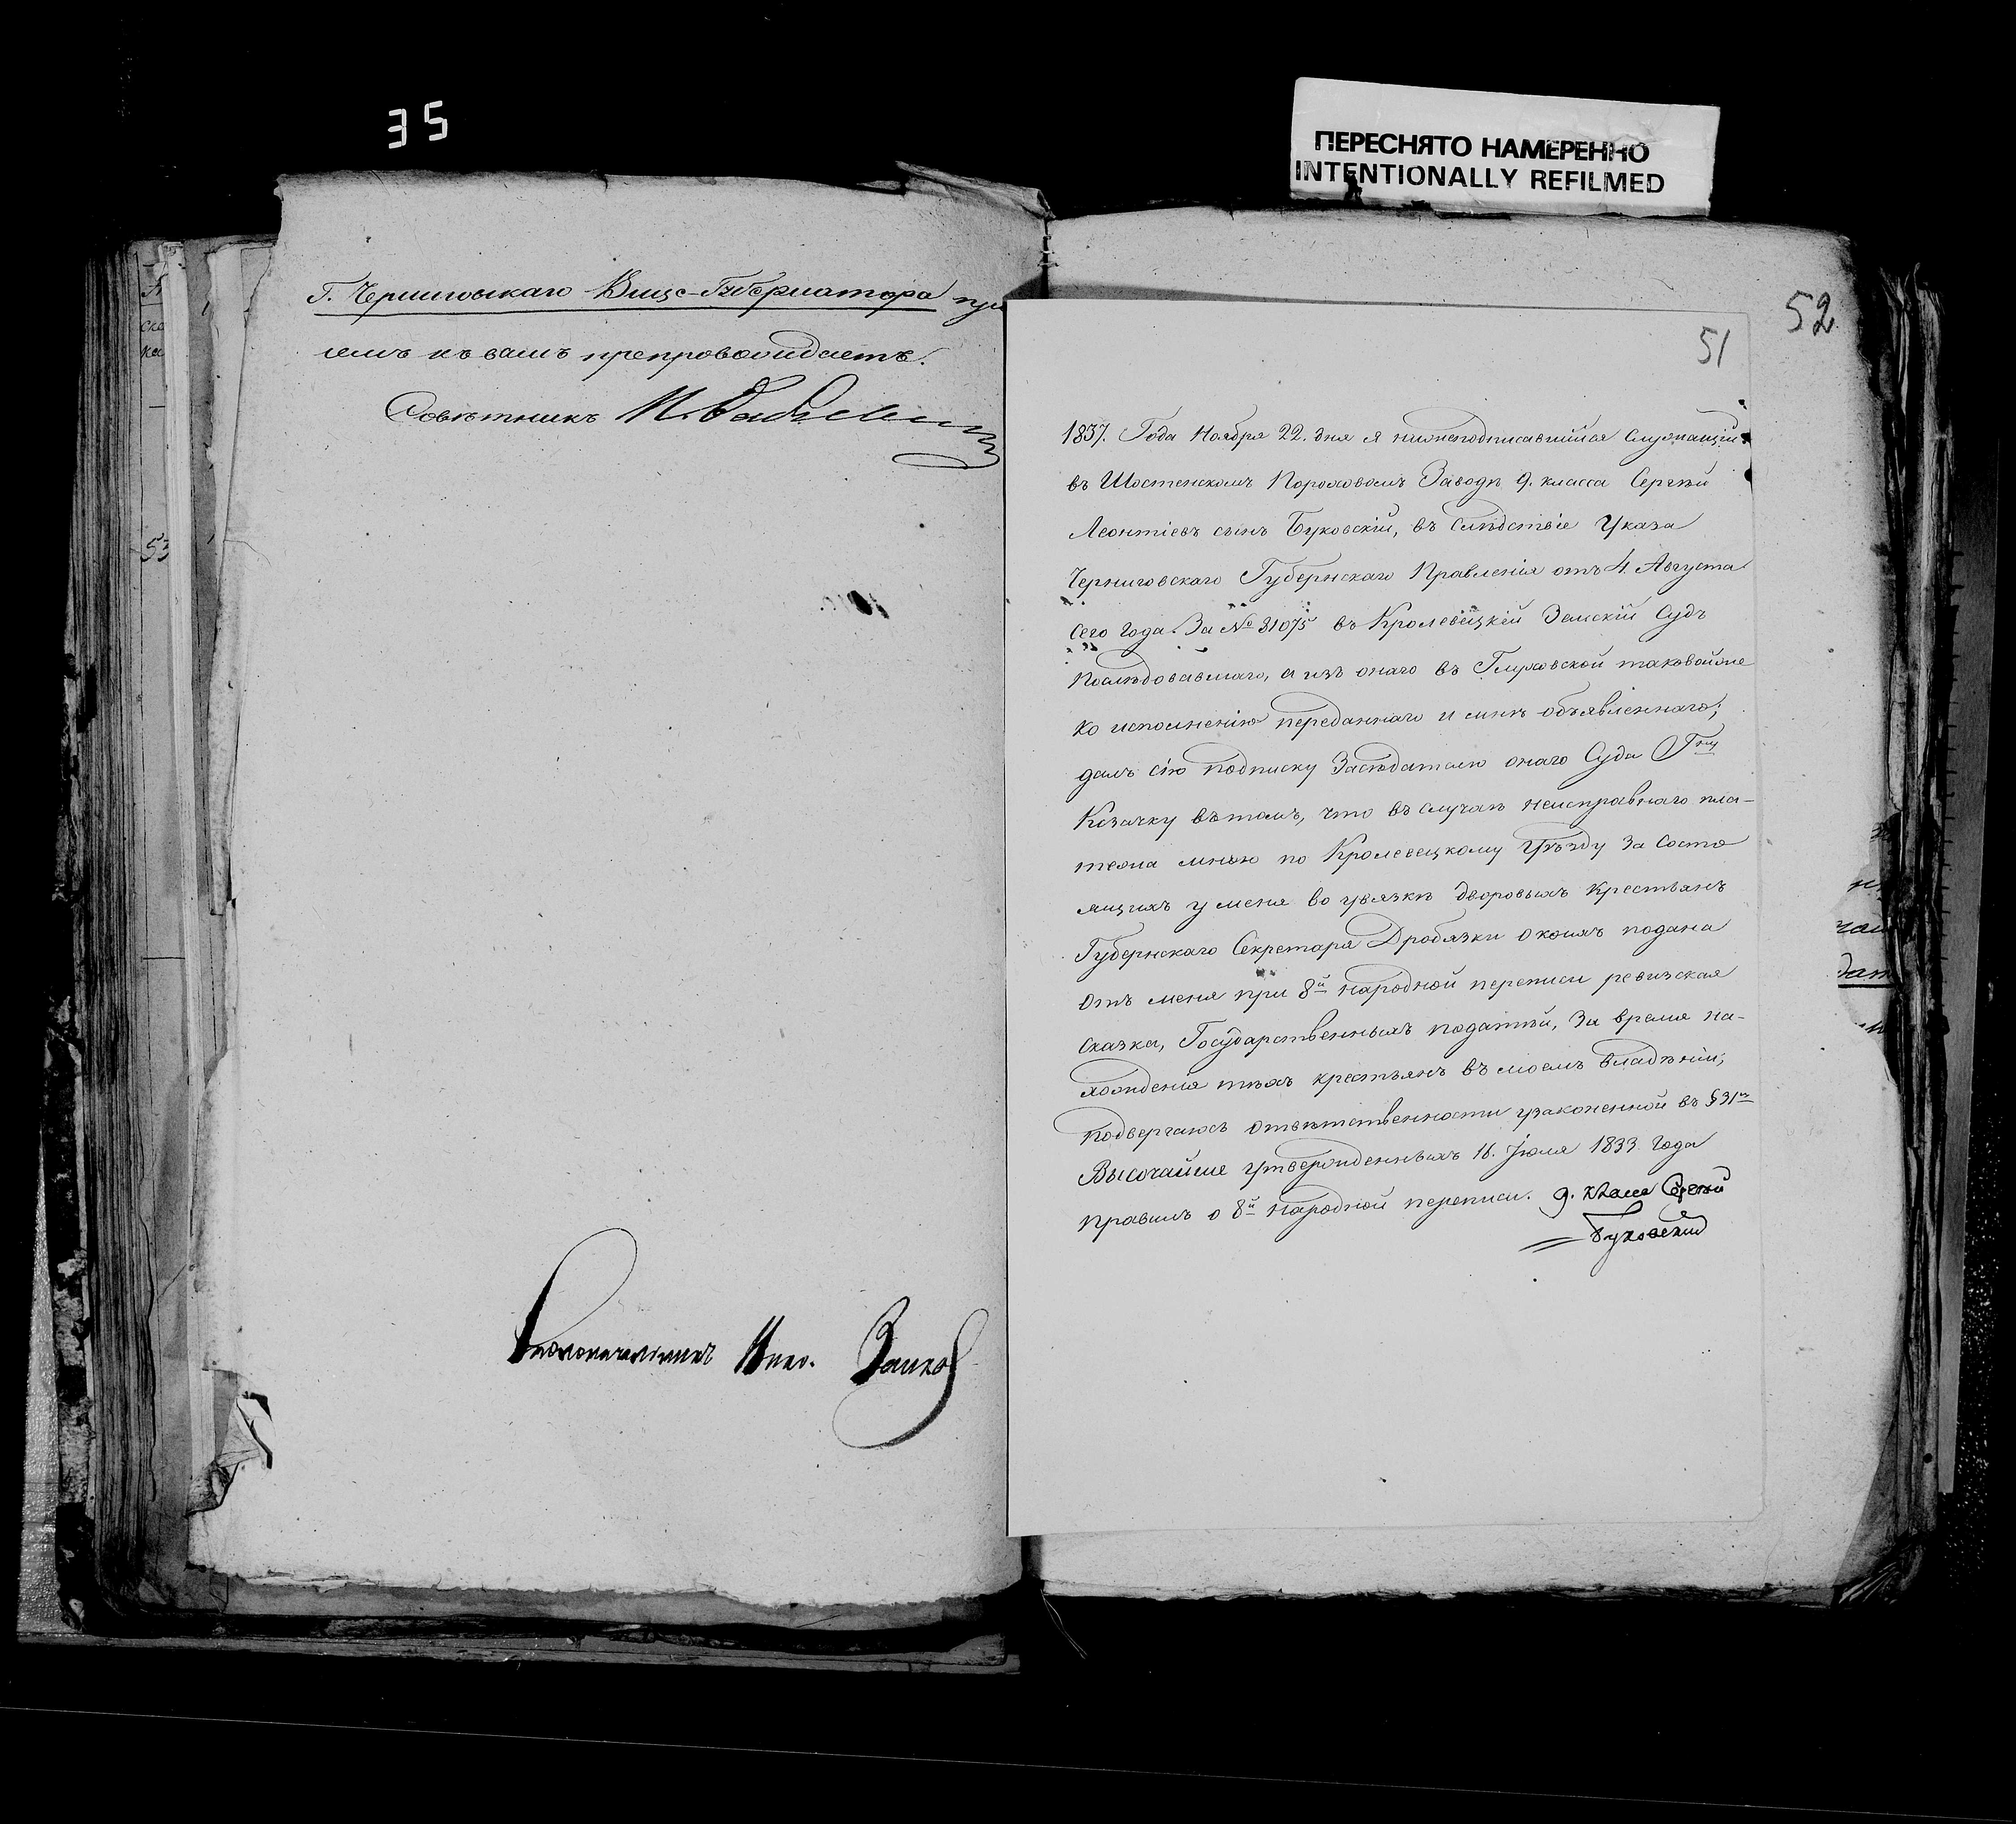 35
ПЕРЕСНЯТО НАМЕРЕННО
INTENTIONALLY REFILMED
Г. Черниговскаго Вице-Губернатора при
семъ къ вамъ препровождаетъ.
Совѣтникъ
Столоначальникъ
52
51
1837. Года Ноября 22. дня я нижеподписавшійся Служащій
въ Шостенскомъ Пороховомъ Заводѣ 9. класса Сергѣй
Леонтіевъ сынъ Буковскій, въ слѣдствіе Указа
Черниговскаго Губернскаго Правленія отъ 4. Августа
сего Года За № 31075 въ Кролевецкій Земскій Судъ
послѣдовавшаго, а изъ онаго въ Глуховской таковойже
ко исполненію переданнаго и мнѣ объявленнаго;
далъ сію подписку Засѣдателю онаго Суда Гну
Козачку въ томъ, что въ случаѣ неисправнаго пла-
тежа мною по Кролевецкому Уѣзду За состо
ящихъ у меня во увязкѣ дворовыхъ крестьянъ
Губернскаго Секретаря Дробязки о коихъ подана
отъ меня при 8й народной переписи ревизская
сказка, Государственныхъ податѣй, За время на-
хожденія тѣхъ крестьянъ въ моемъ владѣніи;
подвергаюсь отвѣтственности узаконенной въ §31мъ
Высочайше утвержденныхъ 16. Іюля 1833 Года
правилъ о 8й народной переписи. 9. класса Сергѣй
Буковский
53